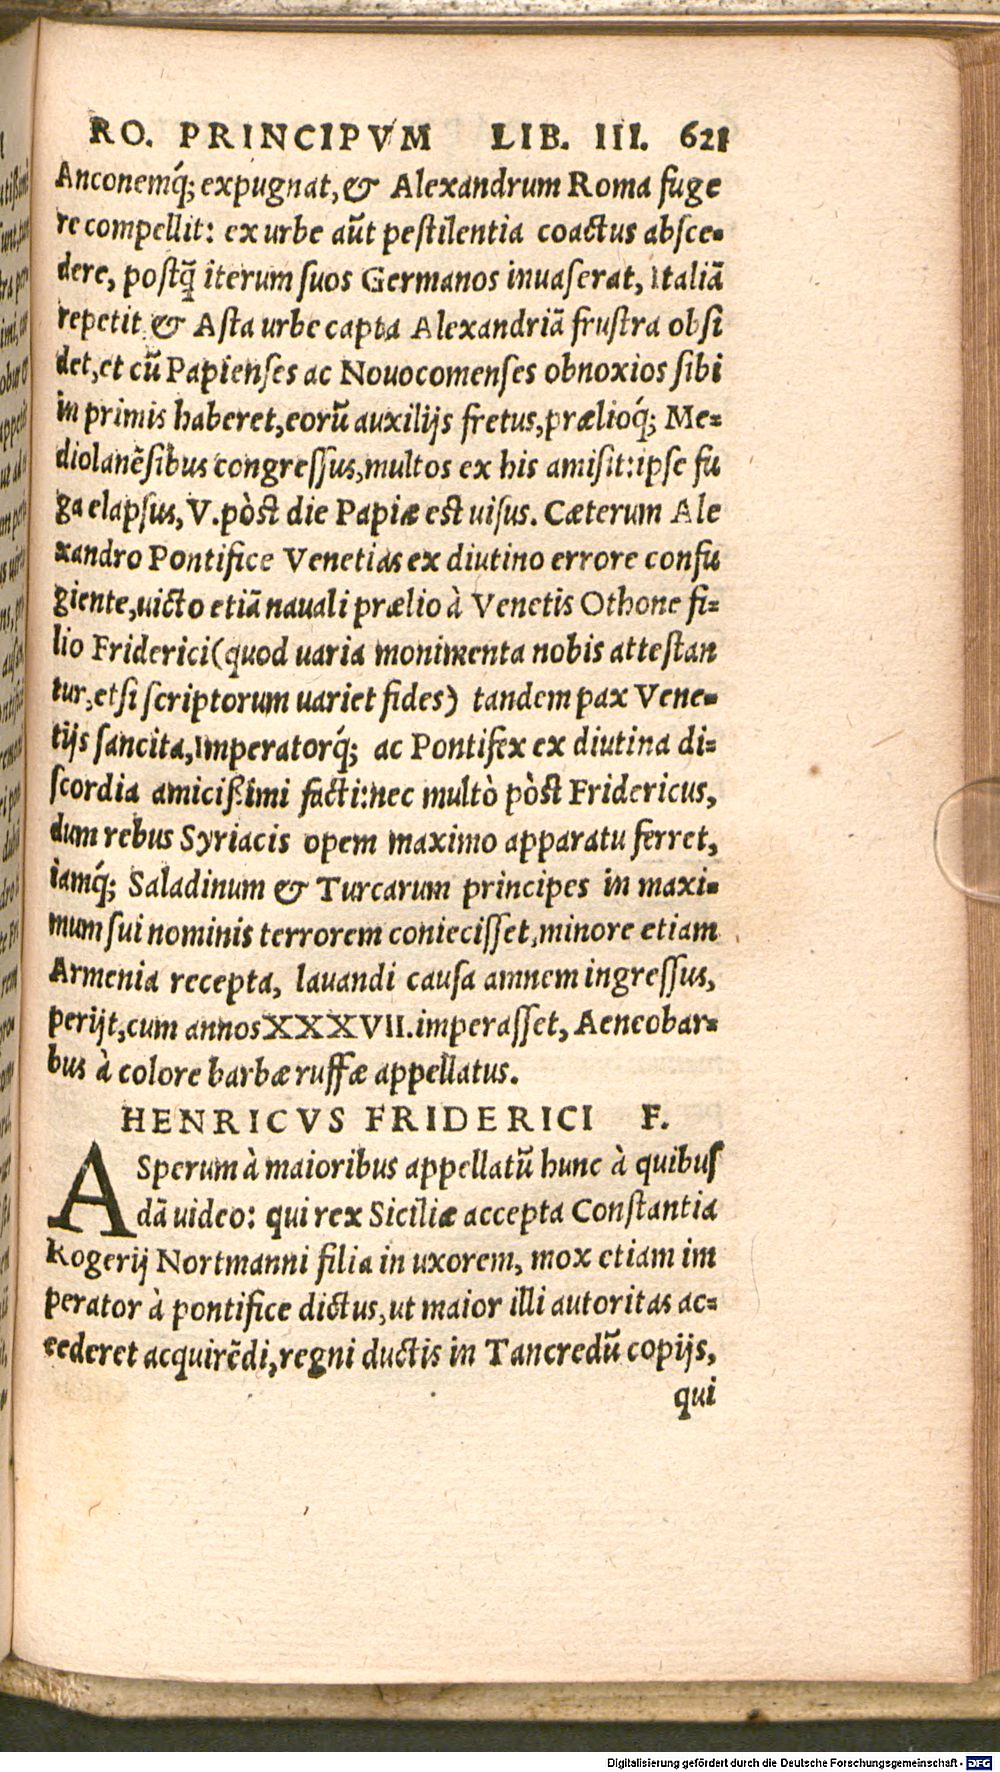 RO. PRINCIPVM LIB. III. 621
Anconemq́; expugnat, & Alexandrum Roma fuge
re compellit: ex urbe aūt pestilentia coactus absce-
dere, postq̄ iterum suos Germanos inuaserat, Italiā
repetit & Asta urbe capta Alexandriā frustra obsi
det, et cū Papienses ac Nouocomenses obnoxios sibi
in primis haberet, eorū auxilijs fretus, prælioq́; Me-
diolanēsibus congressus, multos ex his amisit: ipse fu
ga elapsus, V. pòst die Papiæ est uisus. Cæterum Ale
xandro Pontifice Venetias ex diutino errore confu
giente, uicto etiā nauali prælio à Venetis Othone fi-
lio Friderici (quod uaria monimenta nobis attestan
tur, etsi scriptorum uariet fides) tandem pax Vene-
tijs sancita, Imperatorq́; ac Pontifex ex diutina di-
scordia amicißimi facti: nec multò pòst Fridericus,
dum rebus Syriacis opem maximo apparatu ferret,
iamq́; Saladinum & Turcarum principes in maxi-
mum sui nominis terrorem coniecisset, minore etiam
Armenia recepta, lauandi causa amnem ingressus,
perijt, cum annos XXXVII. imperasset, Aeneobar-
bus à colore barbæ ruffæ appellatus.
HENRICVS FRIDERICI F.
ASperum à maioribus appellatū hunc à quibus
dā uideo: qui rex Siciliæ accepta Constantia
Rogerij Nortmanni filia in uxorem, mox etiam im
perator à pontifice dictus, ut maior illi autoritas ac-
cederet acquirēdi, regni ductis in Tancredū copijs,
qui
Digitalisierung gefördert durch die Deutsche Forschungsgemeinschaft - DFG